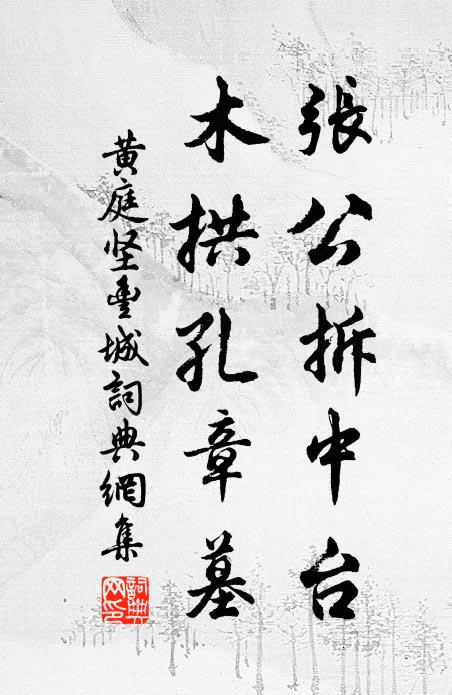 張公拆中台
木拱孔章墓
黄庭坚豊城詞典網集